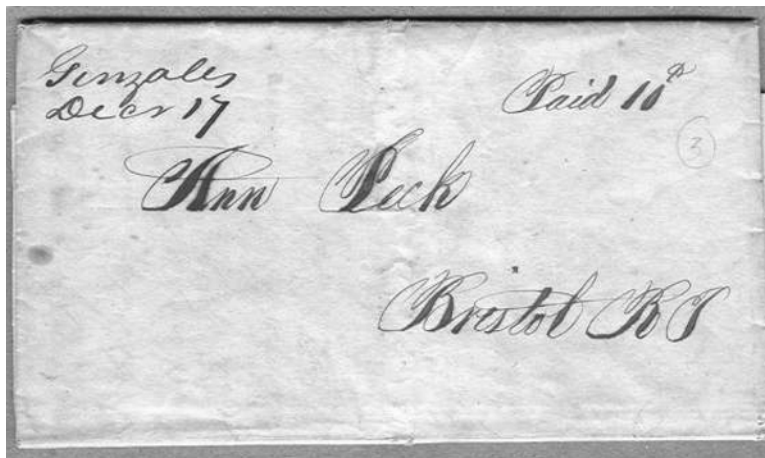 Gonzales
Decr 17
Paid 10
3
Ann Peck
Bristol R I